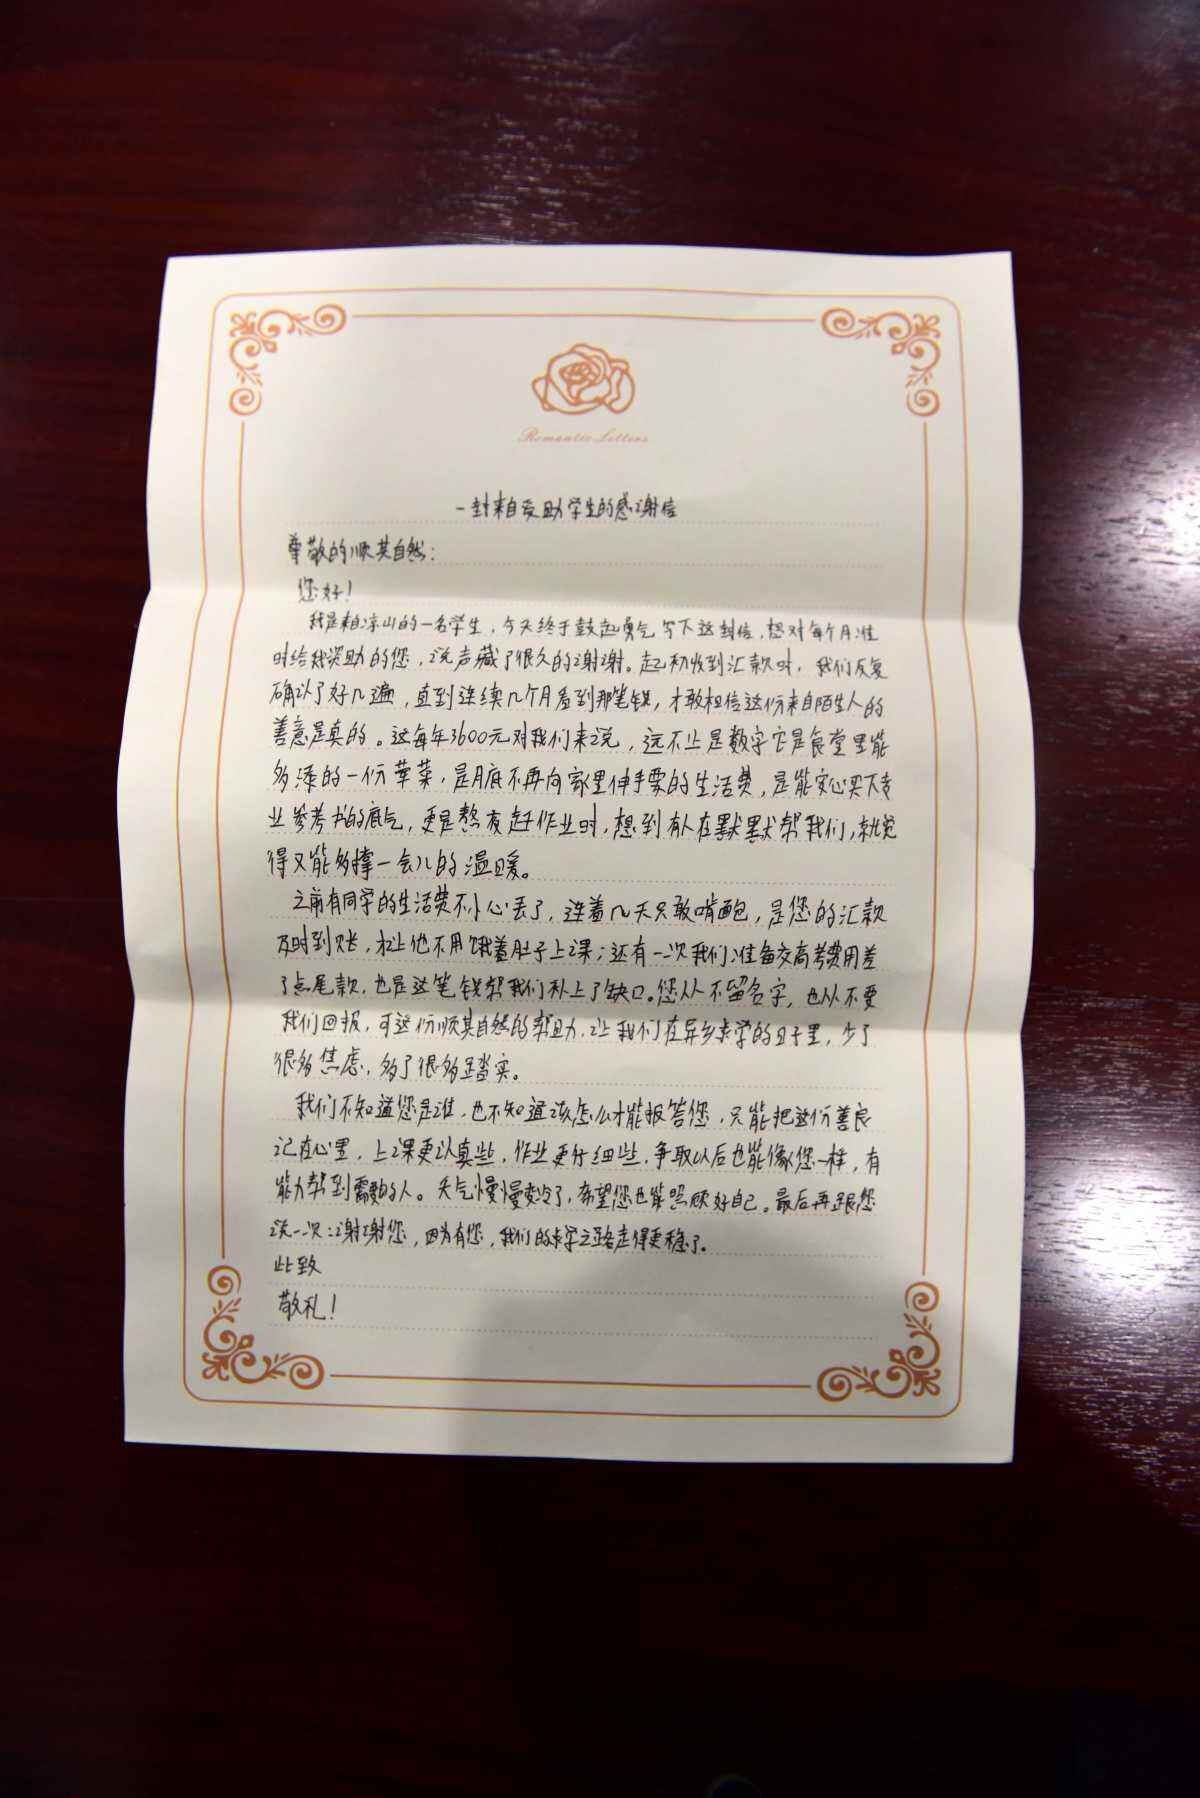 Romantic Letters
一封来自受助学生的感谢信
尊敬的顺其自然：
您好！
我是来自凉山的一名学生，今天终于鼓起勇气写下这封信，想对每个月准
时给我资助的您，说声藏了很久的谢谢。起初收到汇款时，我们反复
确认了好几遍，直到连续几个月看到那笔钱，才敢相信这份来自陌生人的
善意是真的。这每年3600元对我们来说，远不止是数字它是食堂里能
多添的一份荤菜，是月底不再向家里伸手要的生活费，是能安心买下专
业参考书的底气，更是熬夜赶作业时，想到有人在默默帮我们，就觉
得又能多撑一会儿的温暖。
之前有同学的生活费不小心丢了，连着几天只敢啃面包，是您的汇款
及时到账，才让他不用饿着肚子上课；还有一次我们准备交高考费用差
了点尾款，也是这笔钱帮我们补上了缺口。您从不留名字，也从不要
我们回报，可这份顺其自然的帮助，让我们在异乡求学的日子里，少了
很多焦虑，多了很多踏实。
我们不知道您是谁，也不知道该怎么才能报答您，只能把这份善良
记在心里，上课更认真些，作业更仔细些，争取以后也能像您一样，有
能力帮到需要的人。天气慢慢变冷了，希望您也能照顾好自己。最后再跟您
说一次：谢谢您，因为有您，我们的求学之路走得更稳了。
此致
敬礼！